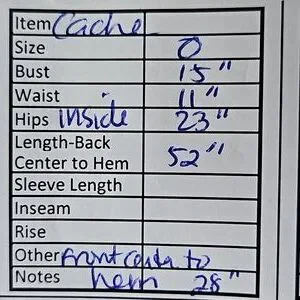 Item Cache
Size 0
Bust 15"
Waist 11"
Hips inside 23"
Length-Back
Center to Hem 52"
Sleeve Length
Inseam
Rise
Other Front center to
Notes hem 28"